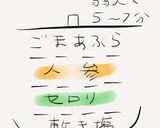 弱火で
5〜7分
ごまあぶら
人参
セロリ
敷き塩